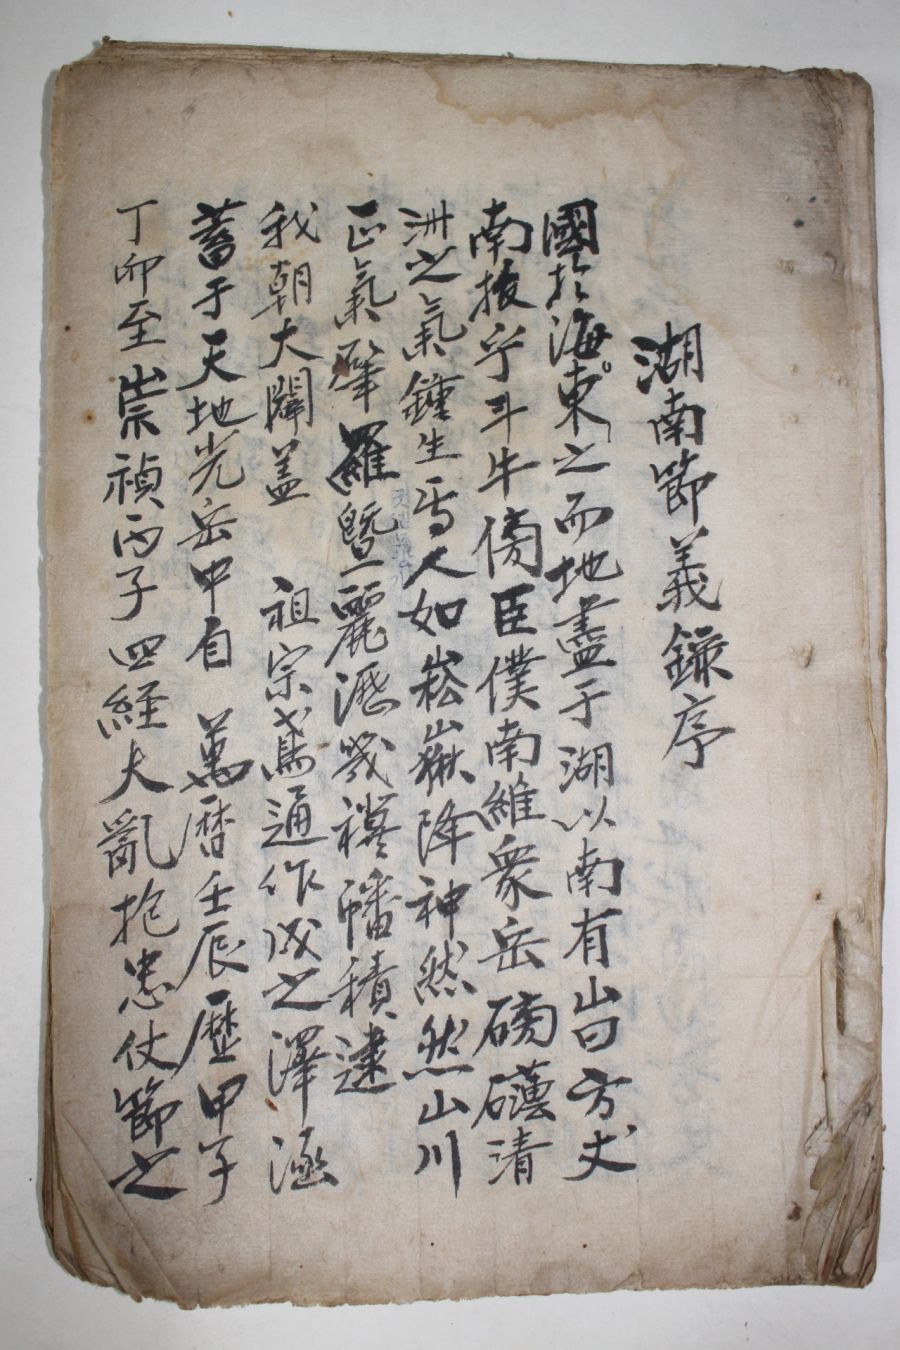 湖南節義錄序
國於海東之而地盡于湖以南有山曰方丈
南拔乎斗牛傍臣僕南維衆岳磅礴清
淋之氣鍾生焉人如崧嶽降神然然山川
正氣肇羅曁麗歷幾禩幡積逮
我朝大闡盖 祖宗鳶通作成之澤涵
蓄于天地光岳中自 萬曆壬辰歷甲子
丁卯至崇禎丙子四経大亂抱忠仗節之